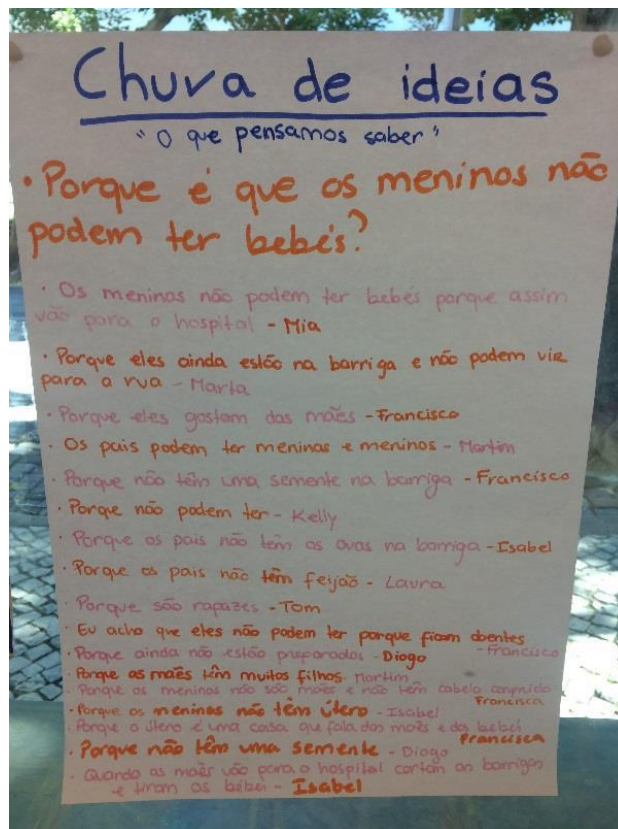 Chuva de ideias
"O que pensamos saber"
· Porque é que os meninos não
podem ter bebés?
· Os meninos não podem ter bebés porque assim
vão para o hospital - Mia
· Porque eles ainda estão na barriga e não podem vir
para a rua - Marta
· Porque eles gostam das mães - Francisco
· Os pais podem ter meninas e meninos - Martim
· Porque não têm uma semente na barriga - Francisco
· Porque não podem ter - Kelly
· Porque os pais não têm os ovos na barriga - Isabel
· Porque os pais não têm feijão - Laura
· Porque são rapazes - Tom
· Eu acho que eles não podem ter porque ficam doentes
- Francisco
· Porque ainda não estão preparados - Diogo
· Porque as mães têm muitos filhos - Martim
· Porque os meninos não são mães e não têm cabelo comprido
Francisca
· Porque os meninos não têm útero - Isabel
· Porque o útero é uma coisa que fala das mães e dos bebés
Francisca
· Porque não têm uma semente - Diogo
· Quando as mães vão para o hospital cortam as barrigas
e tiram os bebés - Isabel